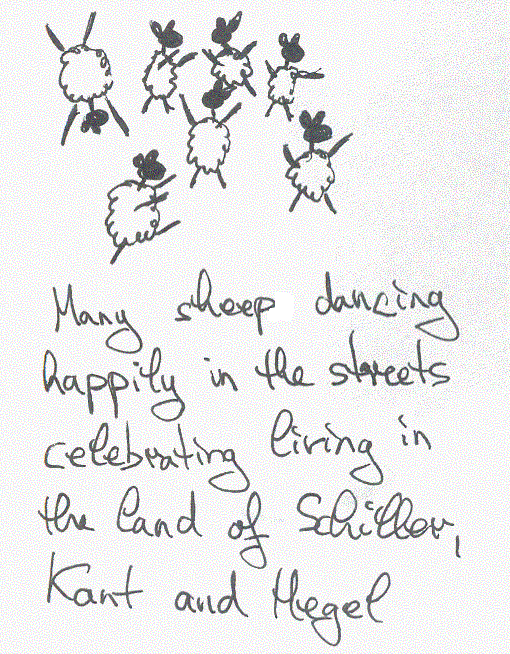 Many sheep dancing
happily in the streets
celebrating living in
the land of Schiller,
Kant and Hegel